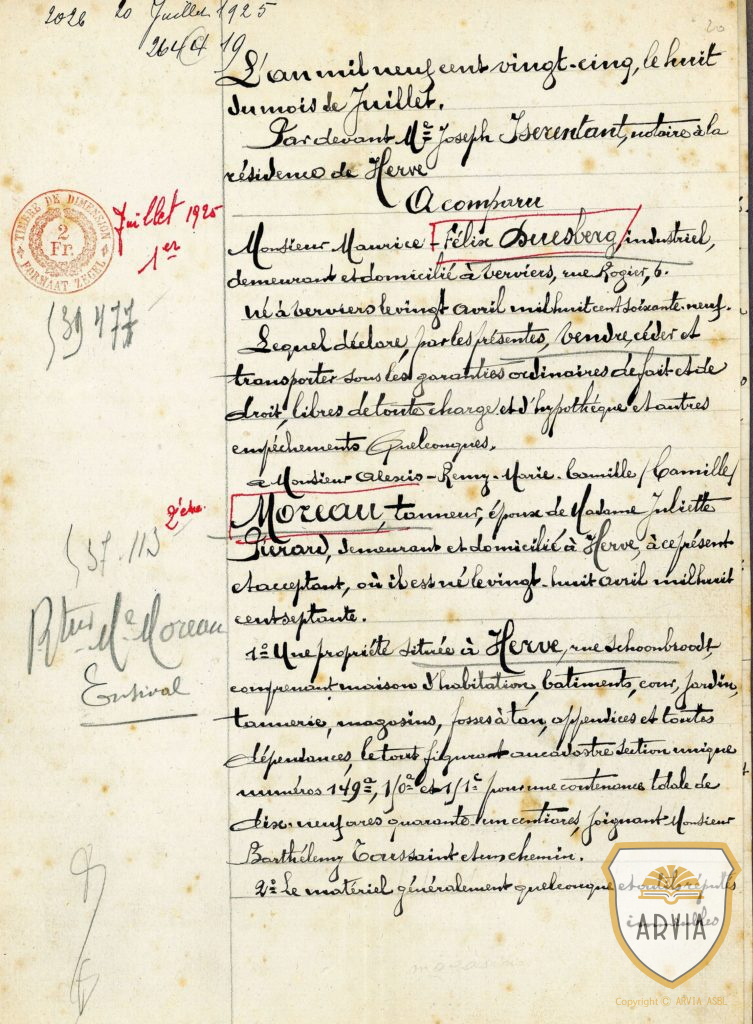 2026 20 Juillet 1925
20
L'an mil neuf cent vingt-cinq, le huit
du mois de Juillet.
Par devant Me Joseph Iserentant, notaire à la
résidence de Herve
A comparu
TIMBRE DE DIMENSION
2
Fr.
FORMAAT ZEGEL
Juillet 1925
1er
Monsieur Maurice-Félix Duesberg, industriel,
demeurant et domicilié à Verviers, rue Rogier, 6.
né à Verviers le vingt avril mil huit cent soixante-neuf.
539 477
Lequel déclare, par les présentes, vendre, céder et
transporter sous les garanties ordinaires de fait et de
droit, libres de toute charge et d'hypothèque et autres
empêchements quelconques.
à Monsieur Alexis-Remy-Marie-Camille /Camille/
Moreau, tanneur, époux de Madame Juliette
Pierard, demeurant et domicilié à Herve, à ce présent
537.113
et acceptant, où il est né le vingt-huit avril mil huit
cent septante.
Me Moreau
Ensival
1° Une propriété située à Herve, rue Schoonbroodt,
comprenant maison d'habitation, bâtiments, cour, jardin,
tannerie, magasins, fosses à tan, appendices et toutes
dépendances, le tout figurant au cadastre section unique
numéros 149a, et pour une contenance totale de
dix-neuf ares quarante-un centiares, joignant Monsieur
Barthélemy Toussaint et un chemin.
2° Le matériel généralement quelconque et outils réputés
immeubles
ARVIA
Copyright © ARVIA ASBL